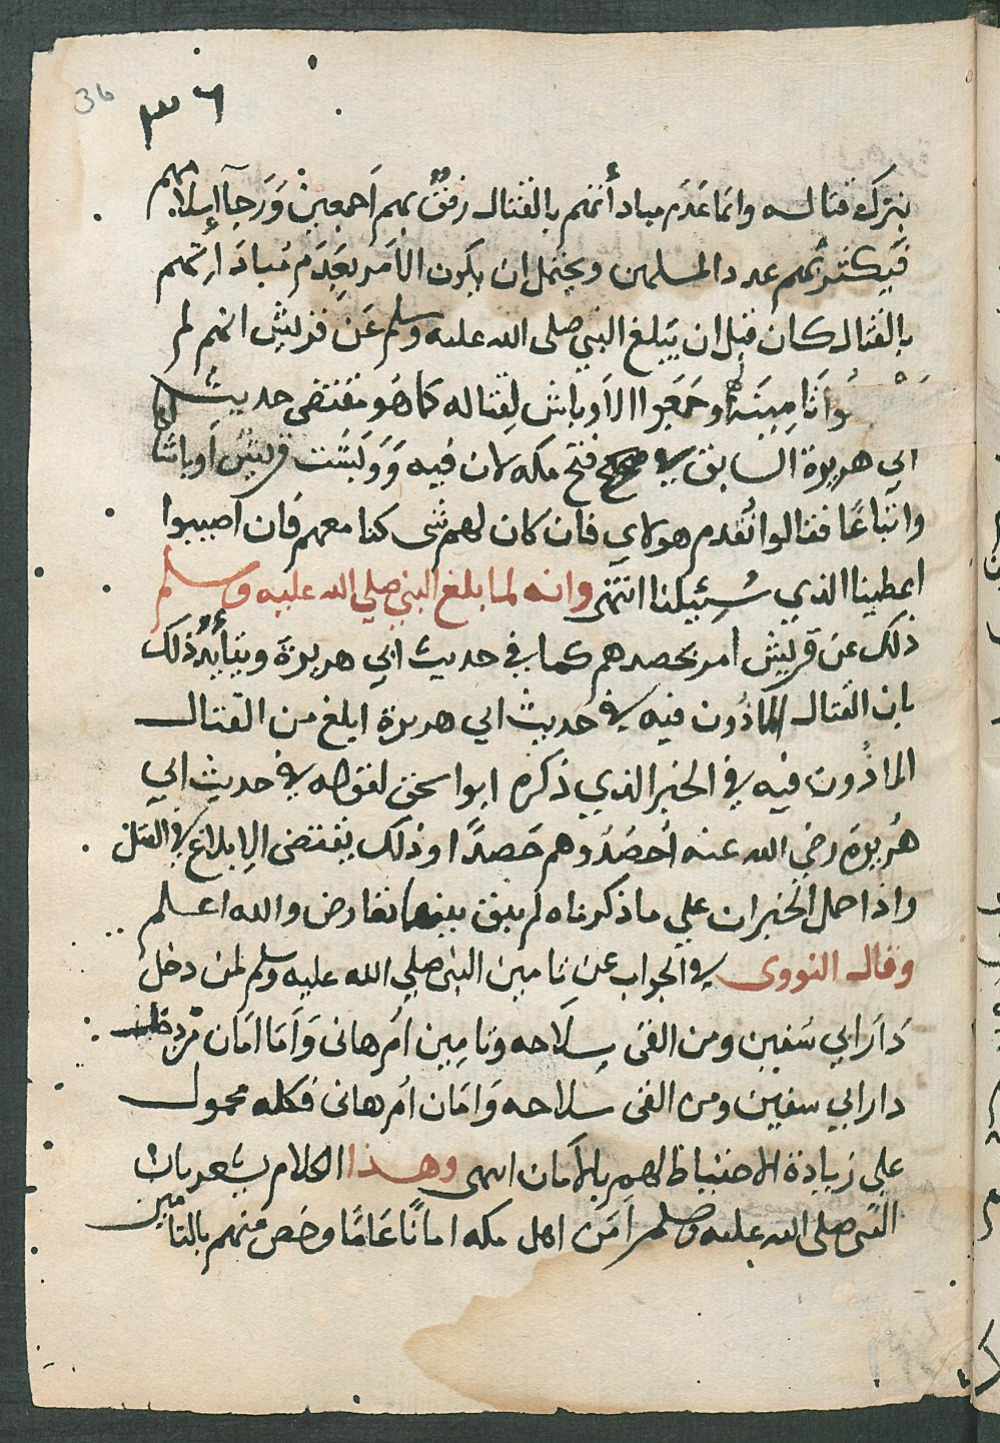 36
٣٦
بترك قتاله وانما عدم مباداتهم بالقتال رفق بهم اجمعين ورجا اسلامهم
فيكثر بهم عدد المسلمين ويحتمل ان يكون الامر بعدم مباداتهم
بالقتال كان قبل ان يبلغ النبي صلى الله عليه وسلم عن قريش انهم لم
تامينه وجمعوا الاوباش لقتاله كما هو مقتضى حديث
ابي هريرة السابق في فتح مكه لان فيه ووبشت قريش اوباشا لها
واتباعا فقالوا نقدم هولاي فان كان لهم شى كنا معهم فان اصيبوا
اعطينا الذي سئيلنا انتهى وانه لما بلغ النبي صلي الله عليه وسلم
ذلك عن قريش امر بحصدهم كما في حديث ابي هريرة ويتأيد ذلك
بان القتال الماذون فيه في حديث ابي هريرة ابلغ من القتال
الماذون فيه في الخبر الذي ذكره ابواسحق لقوله في حديث ابي
هريرة رضي الله عنه احصدوهم حصدا وذلك يقتضى الابلاغ في القتل
واذا حمل الخبران علي ما ذكرناه لم يبق بينهما تعارض والله اعلم
وقال النووى في الجواب عن تامين النبى صلي الله عليه وسلم لمن دخل
دار ابي سفين ومن القى سلاحه وتامين ام هانى واما امان من دخل
دار ابي سفين ومن القى سلاحه وامان ام هانى فكله محمول
علي زيادة الاحتياط لهم بالامان انتهى وهذا الكلام يشعر بان
النبى صلى الله عليه وسلم امن اهل مكه امانا عاما وخص منهم بالتامين